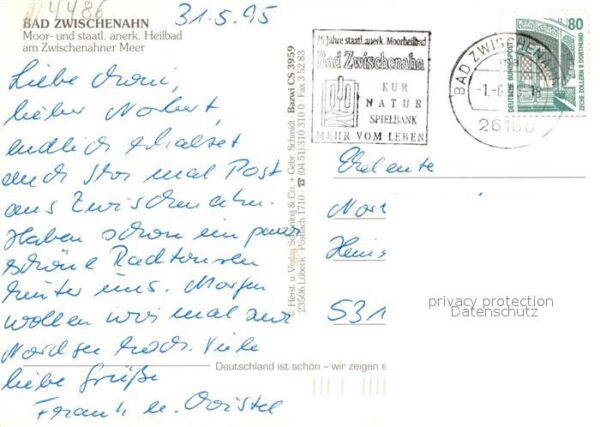 4486
31.5.95
BAD ZWISCHENAHN
Moor- und staatl. anerk. Heilbad
am Zwischenahner Meer
Liebe
lieber Norbert,
endlich erhaltet
auch Ihr mal Post
aus Zwischenahn.
Haben schon ein paar
schöne Radtouren
hinter uns. Morgen
wollen wir mal zur
Nordsee hoch. Viele
liebe Grüße
Frank u. Christel
© Herst. u. Verlag Schöning & Co. + Gebr. Schmidt Bazni CS 3959
23506 Lübeck · Postfach 1710 · ☎ (04 51) 310 310 0 · Fax 3 52 83
75 Jahre staatl. anerk. Moorheilbad
Bad Zwischenahn
KUR
NATUR
SPIELBANK
MEHR VOM LEBEN
BAD ZWISCHENAHN
26160
80
DEUTSCHE BUNDESPOST
ZECHE ZOLLERN II DORTMUND
Nor
Hein
531
privacy protection
Datenschutz
Deutschland ist schön – wir zeigen e